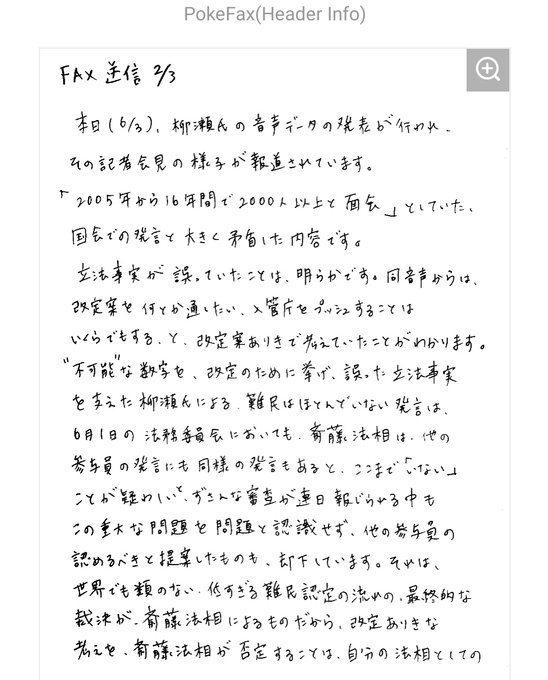 PokeFax(Header Info)
FAX 送信 2/3
本日(6/3)、柳瀬氏の音声データの発表が行われ、
その記者会見の様子が報道されています。
「2005年から16年間で2000人以上と面会」としていた、
国会での発言と大きく矛盾した内容です。
立法事実が誤っていたことは、明らかです。同音声からは、
改定案を何とか通したい、入管庁をプッシュすることは
いくらでもする、と、改定案ありきで考えていたことがわかります。
"不可能"な数字を、改定のために挙げ、誤った立法事実
を支えた柳瀬氏による、難民はほとんどいない発言は、
6月1日の法務委員会においても、斉藤法相は、他の
参与員の発言にも同様の発言もあると、ここまで「いない」
ことが疑わしいと、ずさんな審査が連日報じられる中も
この重大な問題を問題と認識せず、他の参与員の
認めるべきと提案したものも、却下しています。それは、
世界でも類のない、低すぎる難民認定の流れの、最終的な
裁決が、斉藤法相によるものだから、改定ありきな
考えを、斉藤法相が否定することは、自分の法相としての